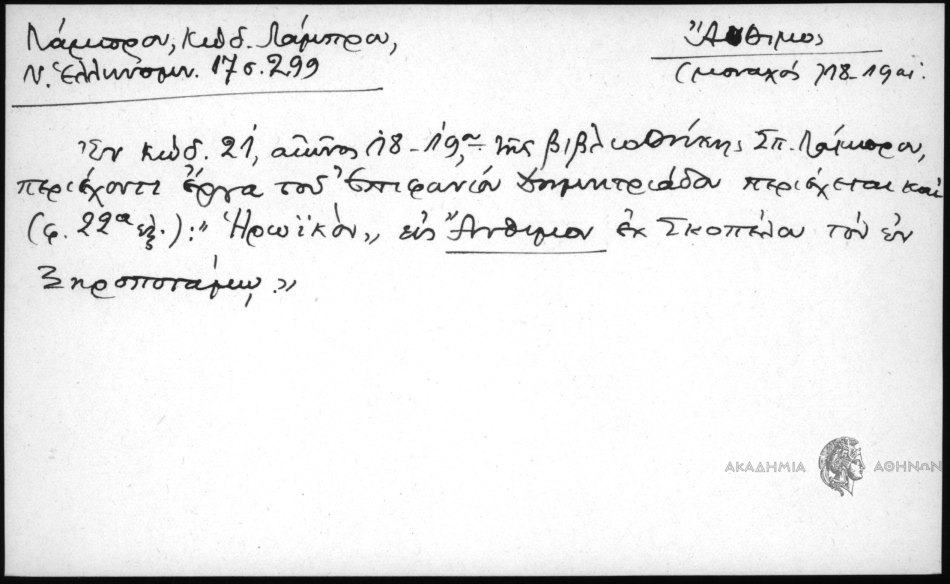 Λάμπρου, Κώδ. Λάμπρου,
Ν. Ἑλληνομν. 17 σ. 299
Ἄνθιμος
(μοναχός) 18-19 αἰ.
Ἐν κώδ. 21, αἰῶνος 18-19, τῆς βιβλιοθήκης Σπ. Λάμπρου,
περιέχοντι ἔργα τοῦ Ἐπιφανίου Δημητριάδου περιέχεται καὶ
(φ. 22α ἑξ.): "Ἡρωϊκὸν,, εἰς Ἄνθιμον ἐκ Σκοπέλου τὸν ἐν
Ξηροποτάμῳ.,,
ΑΚΑΔΗΜΙΑ ΑΘΗΝΩΝ